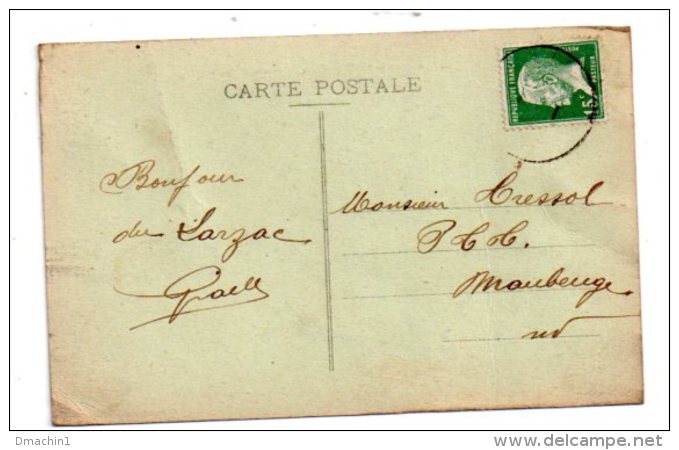 CARTE POSTALE
REPUBLIQUE FRANÇAISE
POSTES
PASTEUR
15c
Bonjour
du Larzac
Gaell
Monsieur Cressol
P.H.H.
Maubeuge
nd
Dmachin1
www.delcampe.net